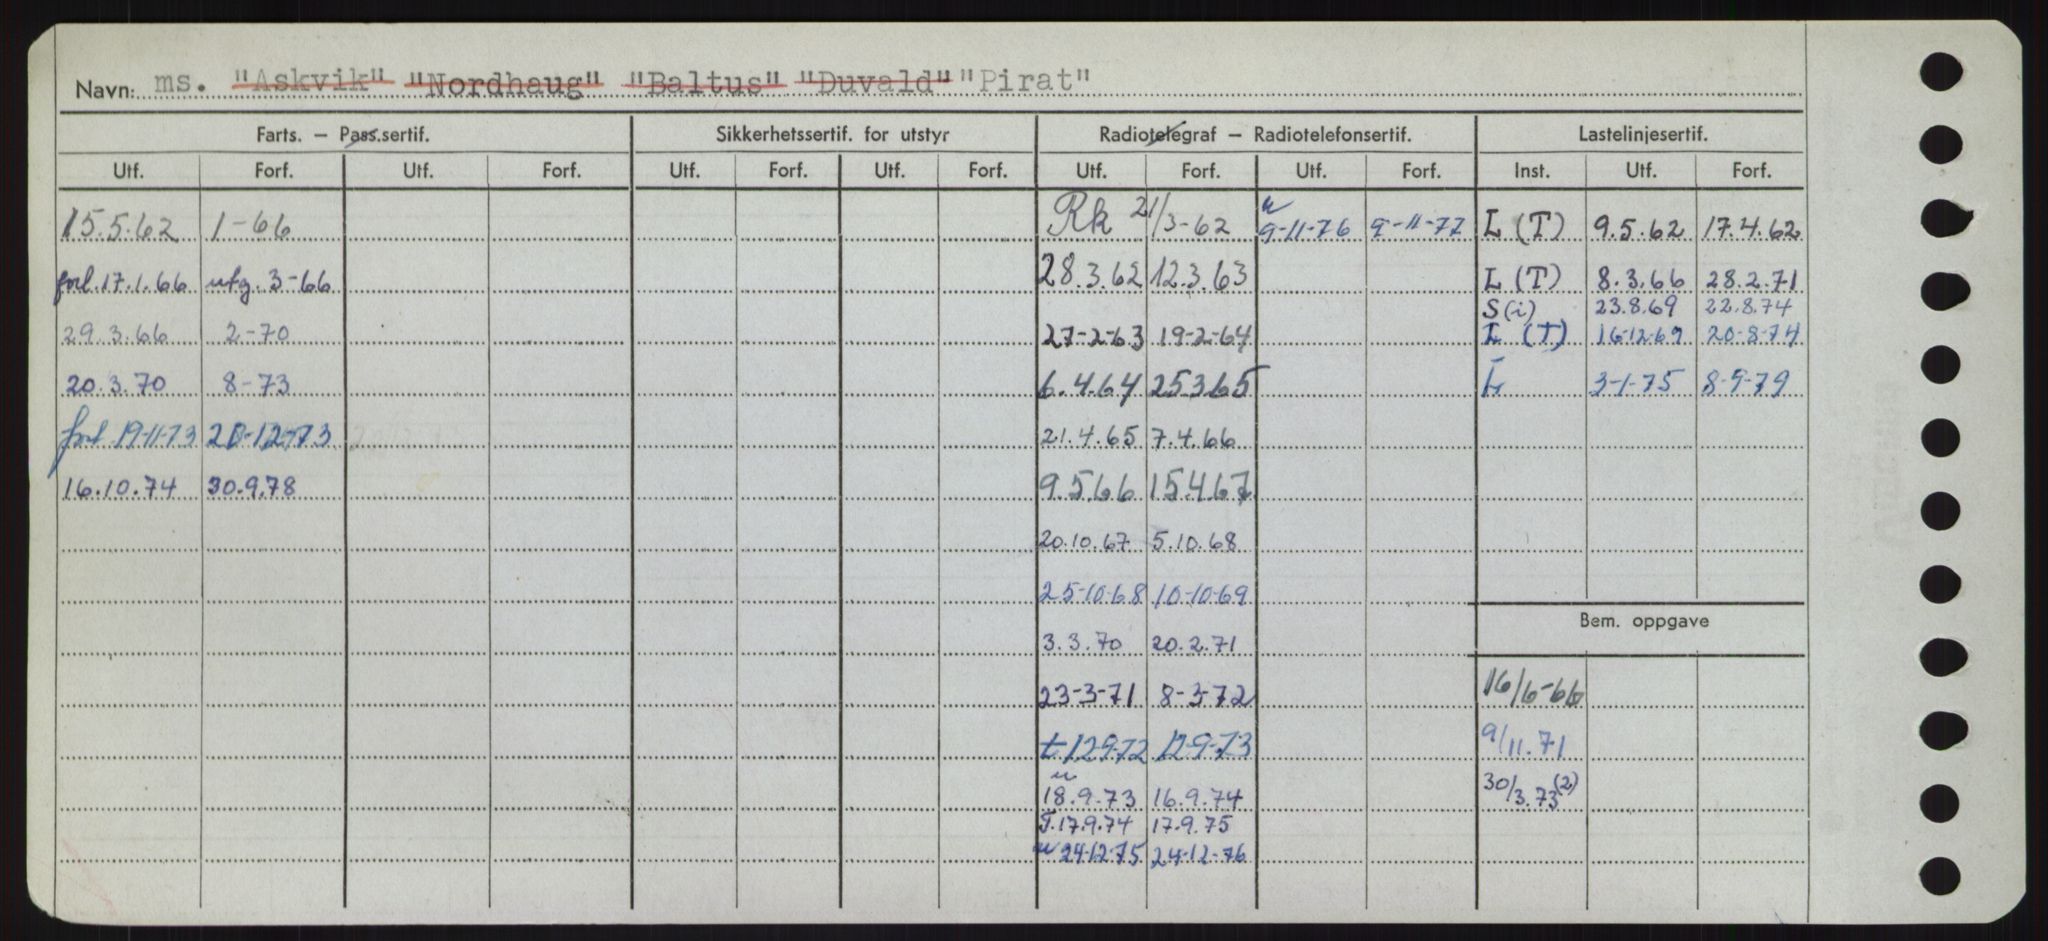 Navn: ms. "Askvik" "Nordhaug" "Baltus" "Duvald" "Pirat"
Farts. — Pass.sertif. Sikkerhetssertif. for utstyr Radiotelegraf — Radiotelefonsertif. Lastelinjesertif.
Utf. Forf. Utf. Forf. Utf. Forf. Utf. Forf. Utf. Forf. Utf. Forf. Inst. Utf. Forf.
15.5.62 1-66 Rk 21/3-62 u 9-11-76 9-11-77 L (T) 9.5.62 17.4.62
forl. 17.1.66 utg. 3-66 28.3.62 12.3.63 L (T) 8.3.66 28.2.71
S (i) 23.8.69 22.8.74
29.3.66 2-70 27-2-63 19-2-64 L (T) 16-12-69 20-8-74
20.3.70 8-73 6.4.64 25365 L 3-1-75 8-9-79
forl. 19-11-73 20-12-73 21.4.65 7.4.66
16.10.74 30.9.78 9.5.66 15.4.67
20.10.67 5.10.68
25-10-68 10-10-69
Bem. oppgave
3.3.70 20.2.71
23-3-71 8-3-72 16/6-66
t 12972 12-9-73 9/11.71
u 18.9.73 16.9.74 30/3.73 (2)
T. 17.9.74 17.9.75
u 24-12-75 24-12-76